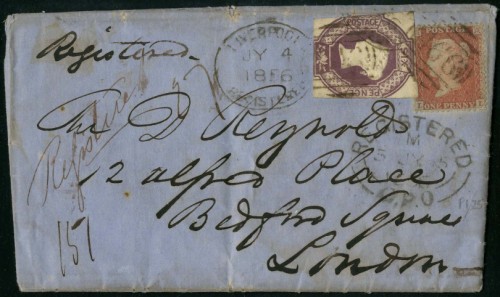 Registered
LIVERPOOL
JY 4
1856
REGISTERED
POSTAGE
PENCE
POSTAGE
ONE PENNY
Registered
D Reynolds
REGISTERED
M
JY 5
G.P.O
12 Alfred Place
151
Bedford Square
London